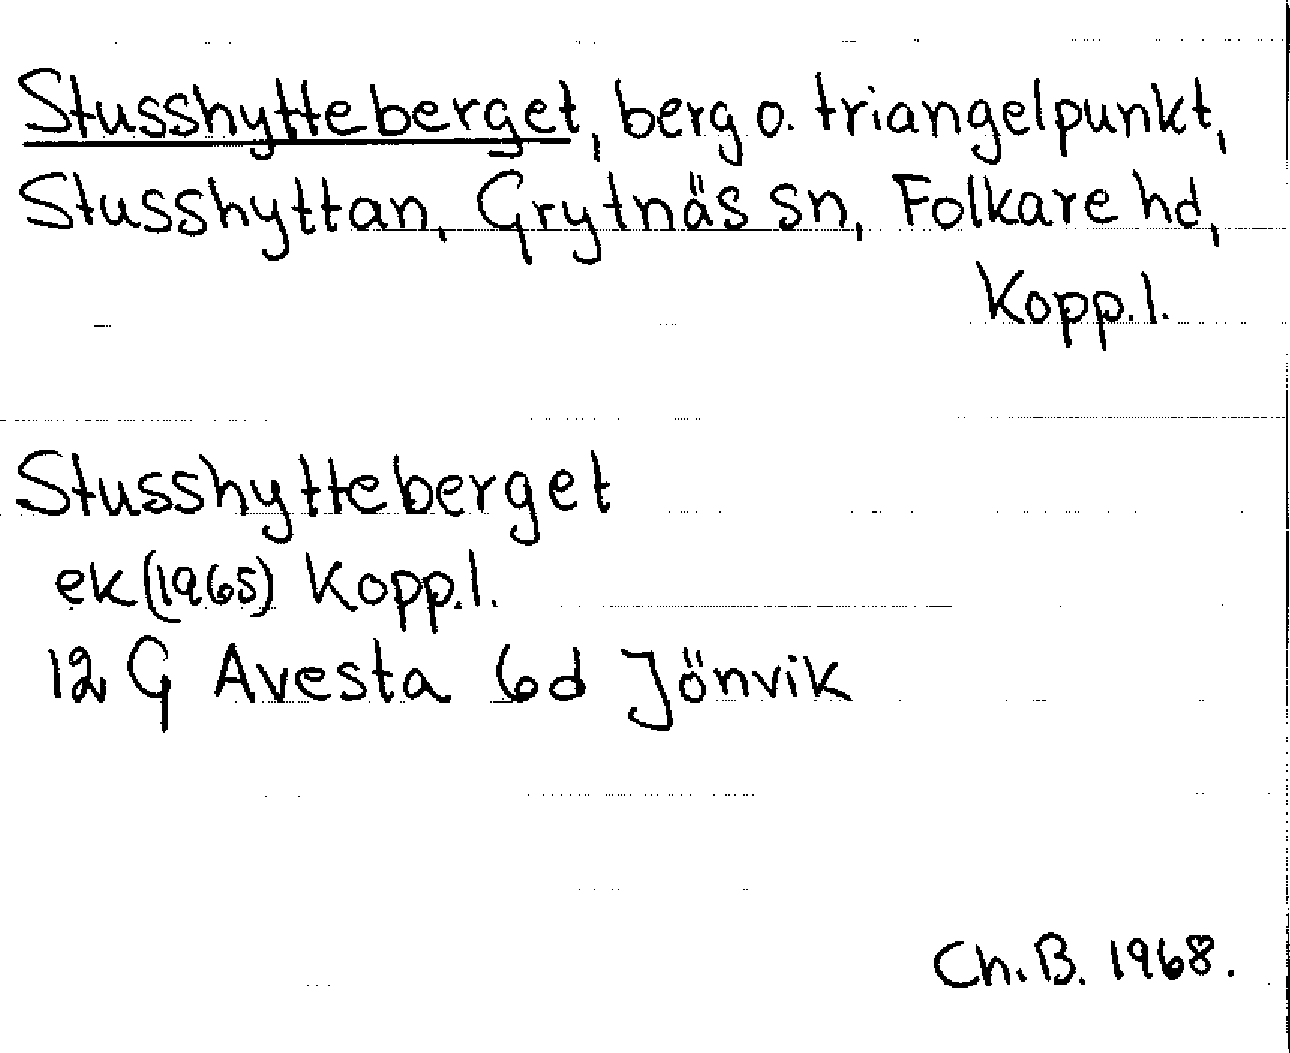 Stusshytteberget, berg o. triangelpunkt,
Stusshyttan, Grytnäs sn, Folkare hd,
Kopp.l.
Stusshytteberget
ek (1965) Kopp.l.
12 G Avesta 6d Jönvik
Ch. B. 1968.